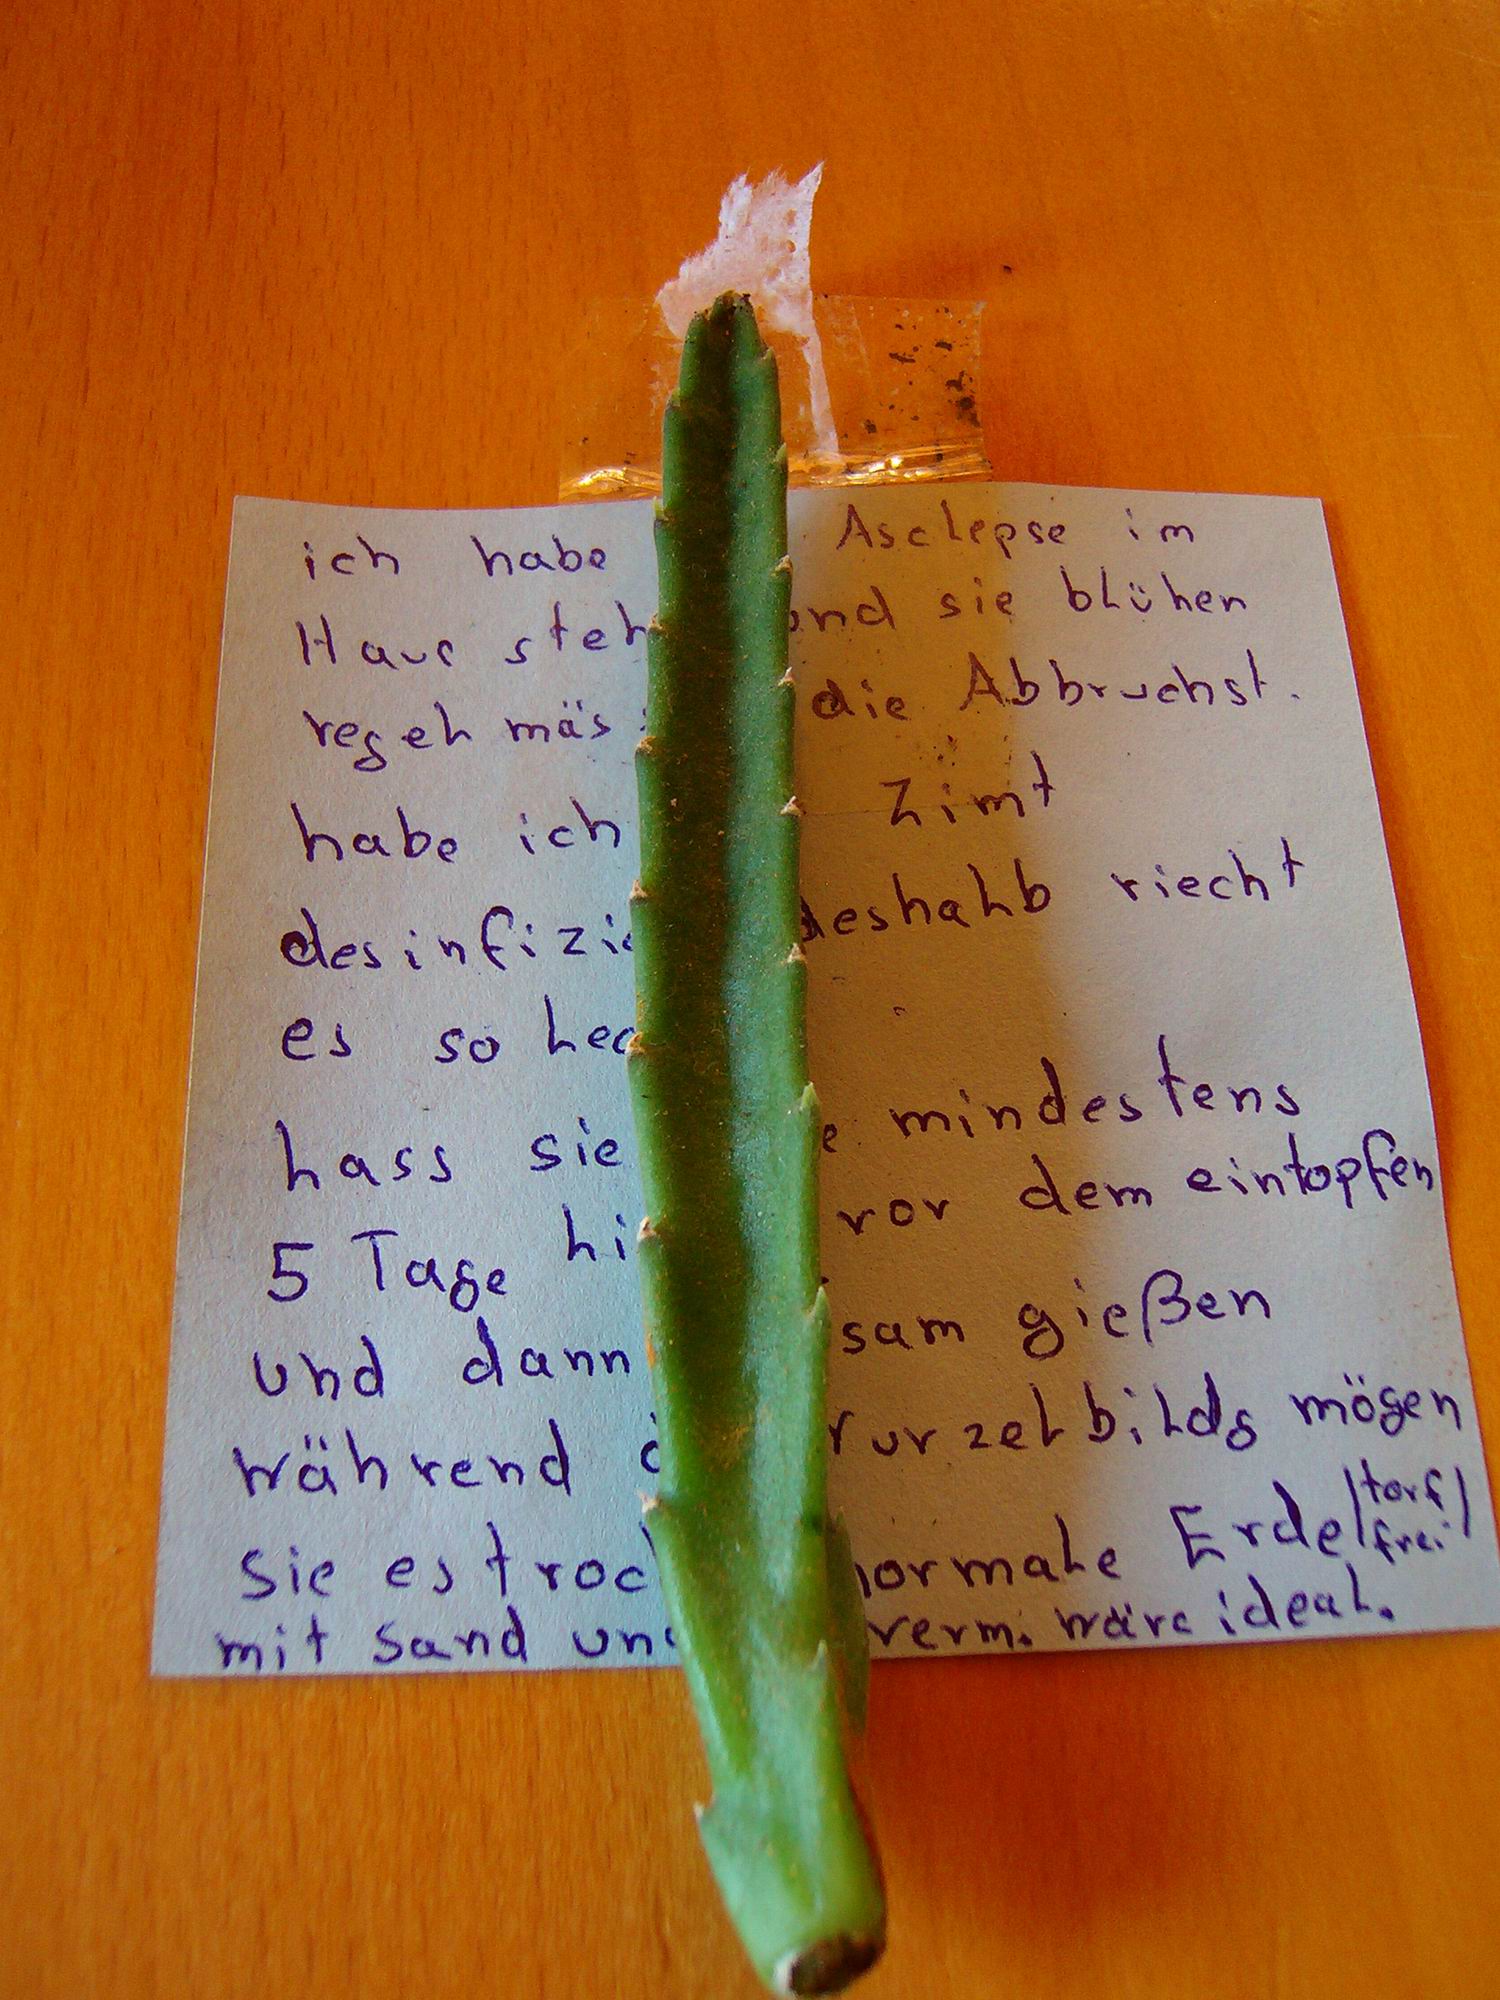 ich habe Asclepse im
Haus steh und sie blühen
regel mäs die Abbruchst.
habe ich Zimt
desinfizie deshalb riecht
es so lec
lass sie e mindestens
5 Tage li vor dem eintopfen
und dann sam gießen
während d wurzelbildg mögen
sie es troc normale Erde (torf
frei)
mit Sand und verm. wäre ideal.